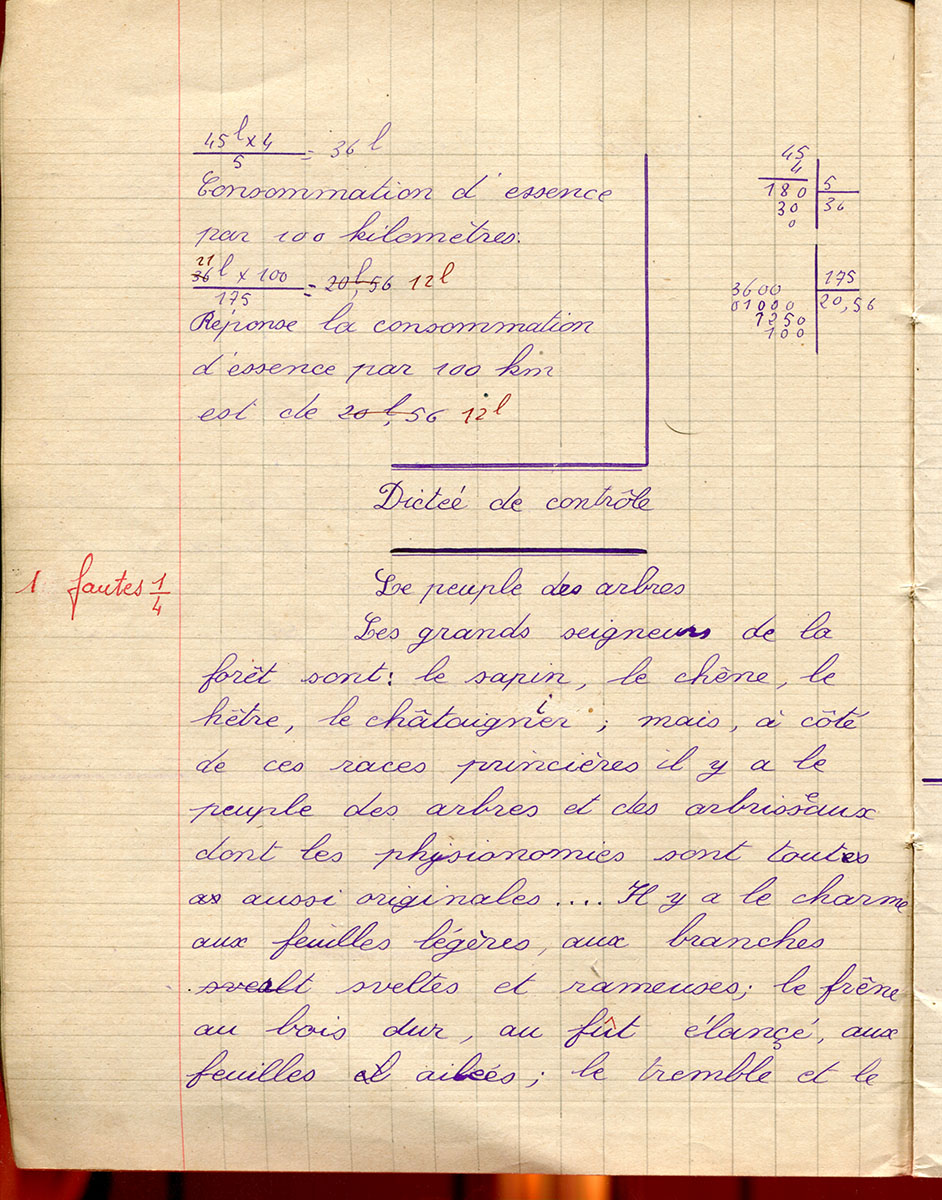 45 l x 4 / 5 = 36 l
Consommation d'essence
par 100 kilomètres:
21
36 l x 100 / 175 = 20 l, 56 12 l
Réponse la consommation
d'éssence par 100 km
est de 20 l, 56 12 l
45
4
180 5
30 36
0
175
3600 20,56
01000
1250
100
Dicteé de contrôle
1 fautes 1/4
Le peuple des arbres
Les grands seigneurs de la
forêt sont: le sapin, le chêne, le
hêtre, le châtaignier ; mais, à côté
de ces races princières il y a le
peuple des arbres et des arbrisseaux
dont les physionomies sont toutes
as aussi originales .... Il y a le charme
aux feuilles légères, aux branches
svelt sveltes et rameuses; le frêne
au bois dur, au fût élançé, aux
feuilles ailées ; le tremble et le